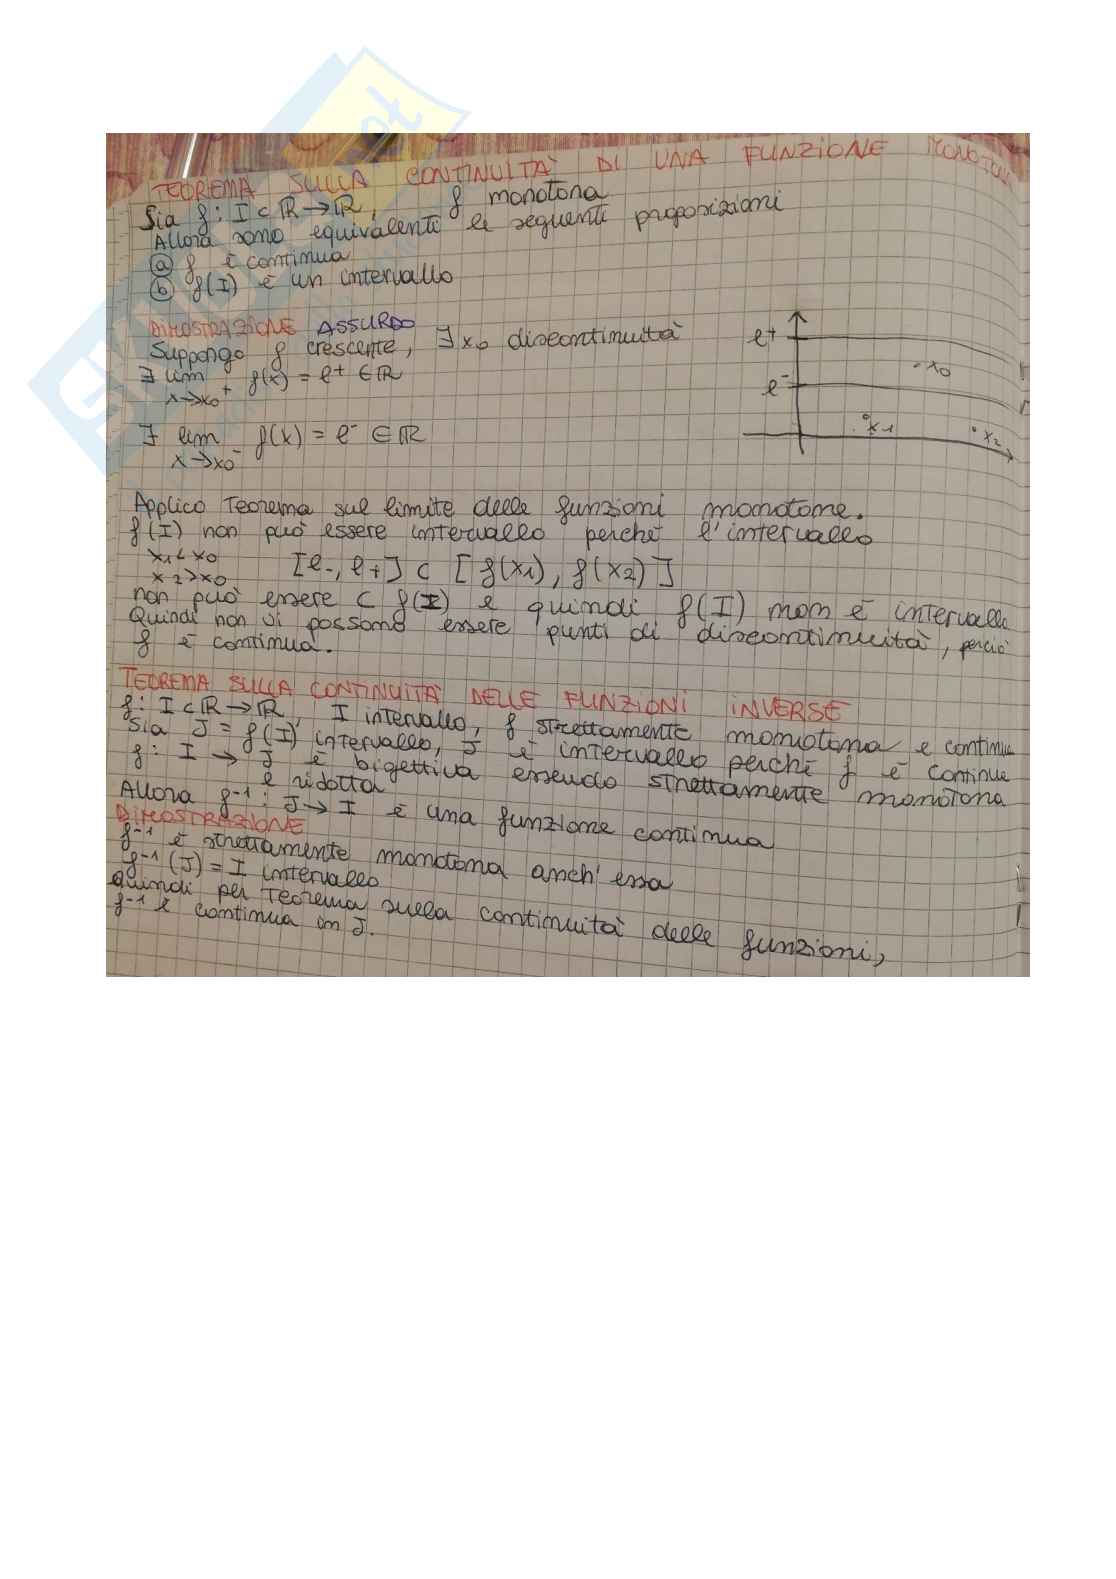 TEOREMA SULLA CONTINUITÀ DI UNA FUNZIONE MONOTONA
Sia f: I ⊂ ℝ → ℝ, f monotona
Allora sono equivalenti le seguenti proposizioni
ⓐ f è continua
ⓑ f(I) è un intervallo
DIMOSTRAZIONE ASSURDO
Suppongo f crescente, ∃ x₀ discontinuità
∃ lim f(x) = l⁺ ∈ ℝ
x→x₀⁺
∃ lim f(x) = l⁻ ∈ ℝ
x→x₀⁻
l⁺
x₀
l⁻
x₁
x₂
Applico Teorema sul limite delle funzioni monotone.
f(I) non può essere intervallo perché l'intervallo
x₁<x₀
x₂>x₀
[l₋, l₊] ⊂ [f(x₁), f(x₂)]
non può essere ⊂ f(I) e quindi f(I) non è intervallo
Quindi non vi possono essere punti di discontinuità, perciò
f è continua.
TEOREMA SULLA CONTINUITÀ DELLE FUNZIONI INVERSE
f: I ⊂ ℝ → ℝ, I intervallo, f strettamente monotona e continua
Sia J = f(I) intervallo, J è intervallo perché f è continua
f: I → J è bigettiva essendo strettamente monotona
e ridotta
Allora f⁻¹: J → I è una funzione continua
DIMOSTRAZIONE
f⁻¹ è strettamente monotona anch'essa
f⁻¹(J) = I intervallo
Quindi per Teorema sulla continuità delle funzioni,
f⁻¹ è continua in J.